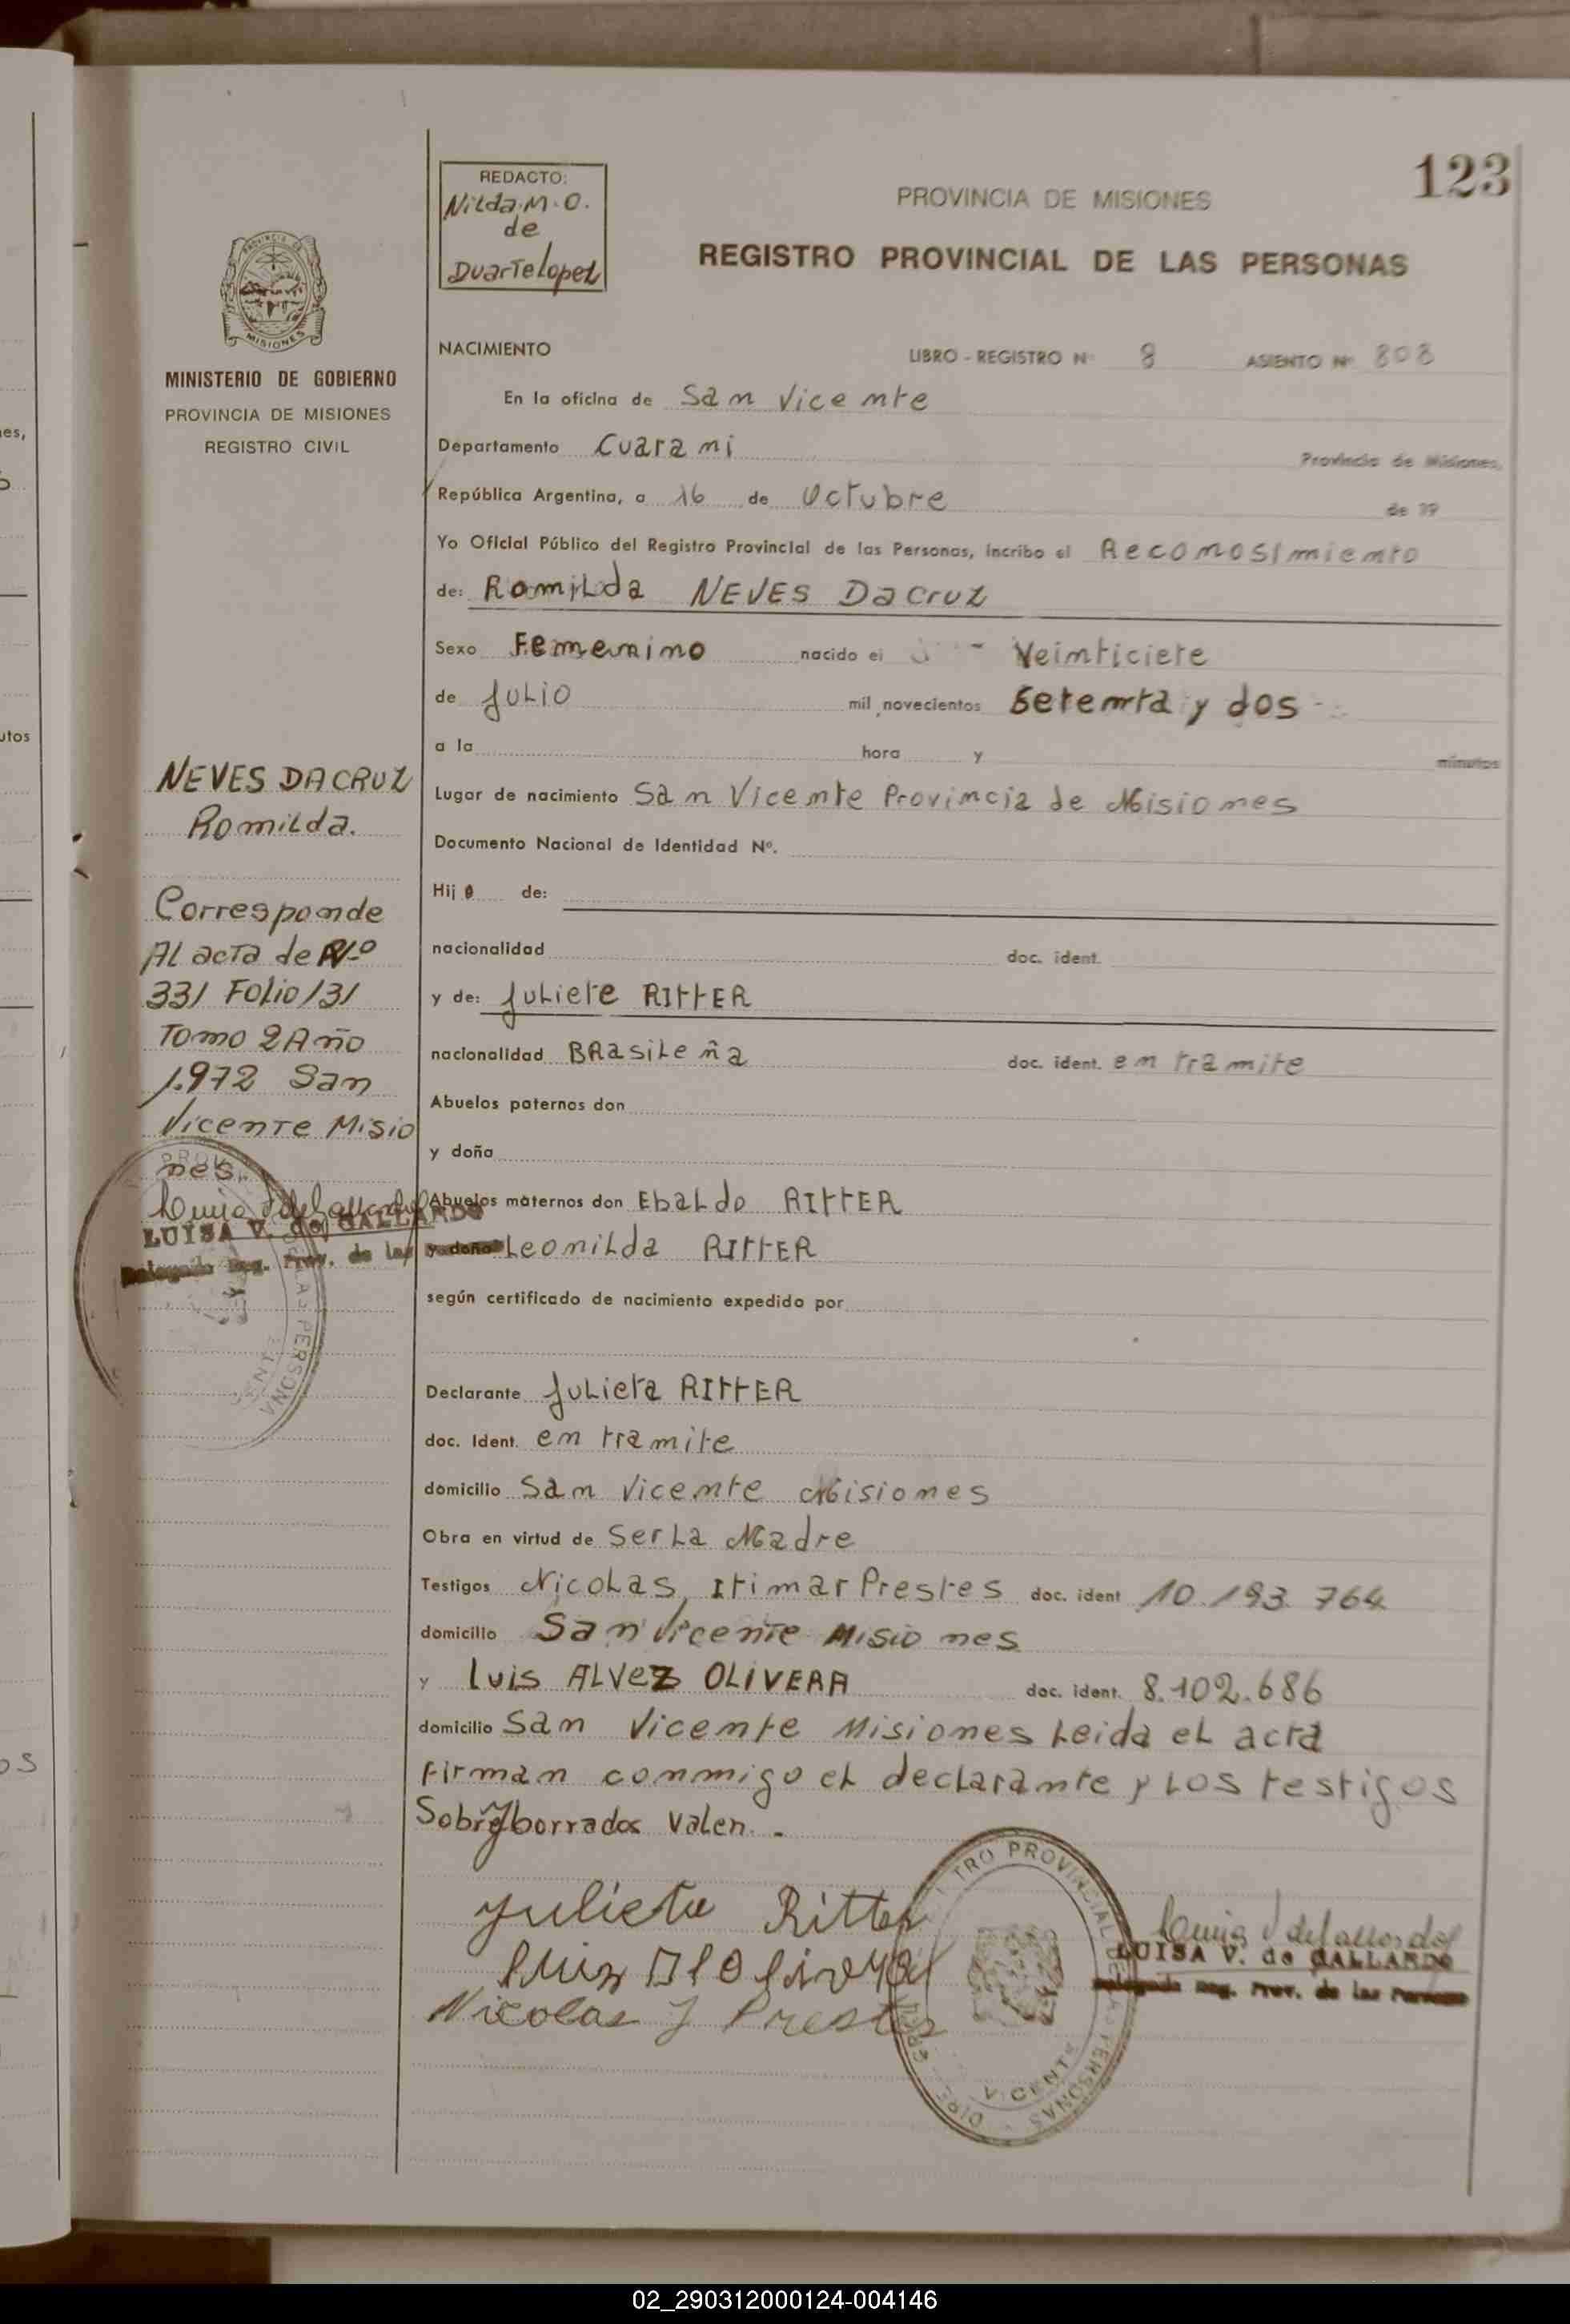 123
REDACTO:
Nilda.M.O.
de
Duarte Lopez
PROVINCIA DE MISIONES
REGISTRO PROVINCIAL DE LAS PERSONAS
PROVINCIA DE
MISIONES
MINISTERIO DE GOBIERNO
PROVINCIA DE MISIONES
REGISTRO CIVIL
NACIMIENTO
LIBRO - REGISTRO Nº 8 ASIENTO Nº 808
En la oficina de San Vicente
Departamento Cuarani Provincia de Misiones,
República Argentina, a 16 de Octubre de 19
Yo Oficial Público del Registro Provincial de las Personas, incribo el Reconosimiento
de: Romilda NEVES DaCruz
Sexo Femenino nacido el Veinticiete
de Julio mil novecientos Setenta y dos
a la hora y minutos
Lugar de nacimiento San Vicente Provincia de Misiones
Documento Nacional de Identidad Nº.
Hij de:
nacionalidad doc. ident.
y de: Juliete RITTER
nacionalidad BRasileña doc. ident. en tramite
Abuelos paternos don
y doña
Abuelos maternos don Ebaldo RITTER
y doña Leonilda RITTER
según certificado de nacimiento expedido por
Declarante Julieta RITTER
doc. Ident. en tramite
domicilio San Vicente Misiones
Obra en virtud de Ser La Madre
Testigos Nicolas, Itimar Prestes doc. ident 10.193.764
domicilio San Vicente Misiones
y Luis ALVEZ OLIVERA doc. ident. 8.102.686
domicilio San Vicente Misiones Leida el acta
firman conmigo el declarante y los testigos
Sobre borrados Valen.-
NEVES DACRUZ
Romilda.
Corresponde
Al acta de Nº
331 Folio 131
Tomo 2 Año
1.972 San
Vicente Misio
nes.
LUISA V. de GALLARDO
Delegada Reg. Prov. de las
Julieta Ritter
Nicolas J Prestes
TRO PROVINCIAL DE LAS PERSONAS
VICENTE
LUISA V. de GALLARDO
Delegada Reg. Prov. de las Personas
02_290312000124-004146